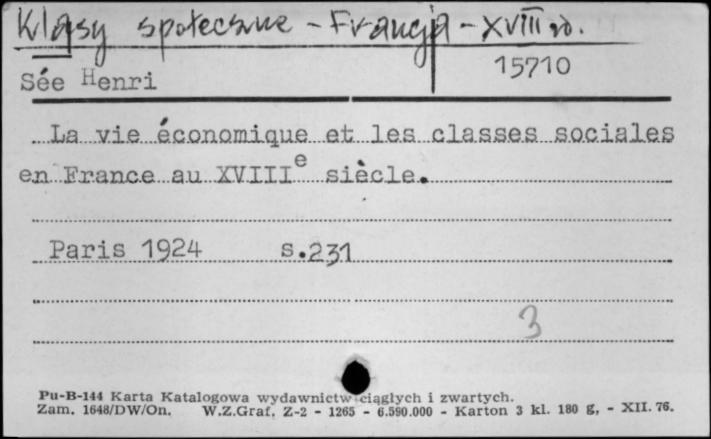 Klasy społeczne - Francja - XVIII w.
15710
Sée Henri
La vie économique et les classes sociales
en France au XVIIIe siècle.
Paris 1924 s.231
3
Pu-B-144 Karta Katalogowa wydawnictw ciągłych i zwartych.
Zam. 1648/DW/On. W.Z.Graf. Z-2 - 1265 - 6.590.000 - Karton 3 kl. 180 g. - XII. 76.